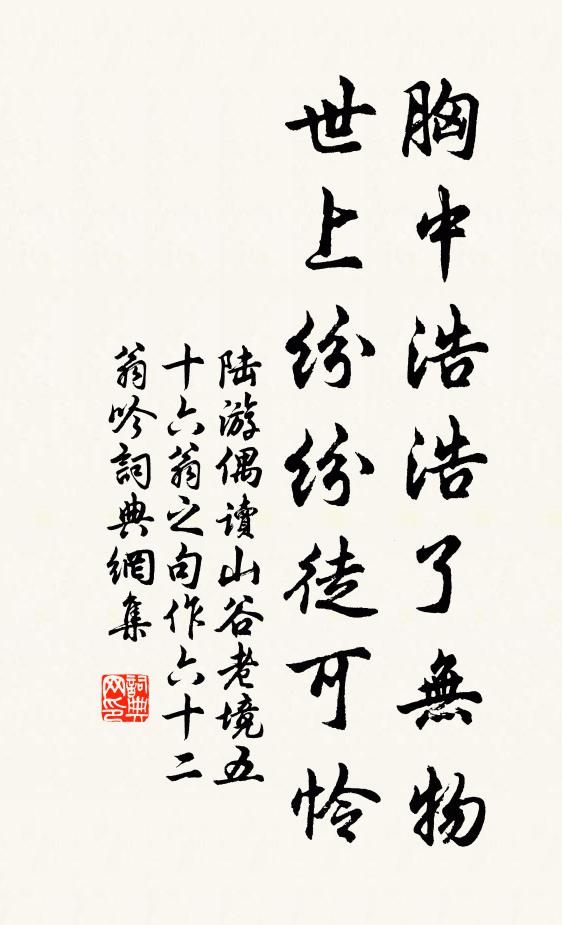 胸中浩浩了無物
世上紛紛徒可怜
陆游偶讀山谷老境五
十六翁之句作六十二
翁吟詞典網集
詞典
网印